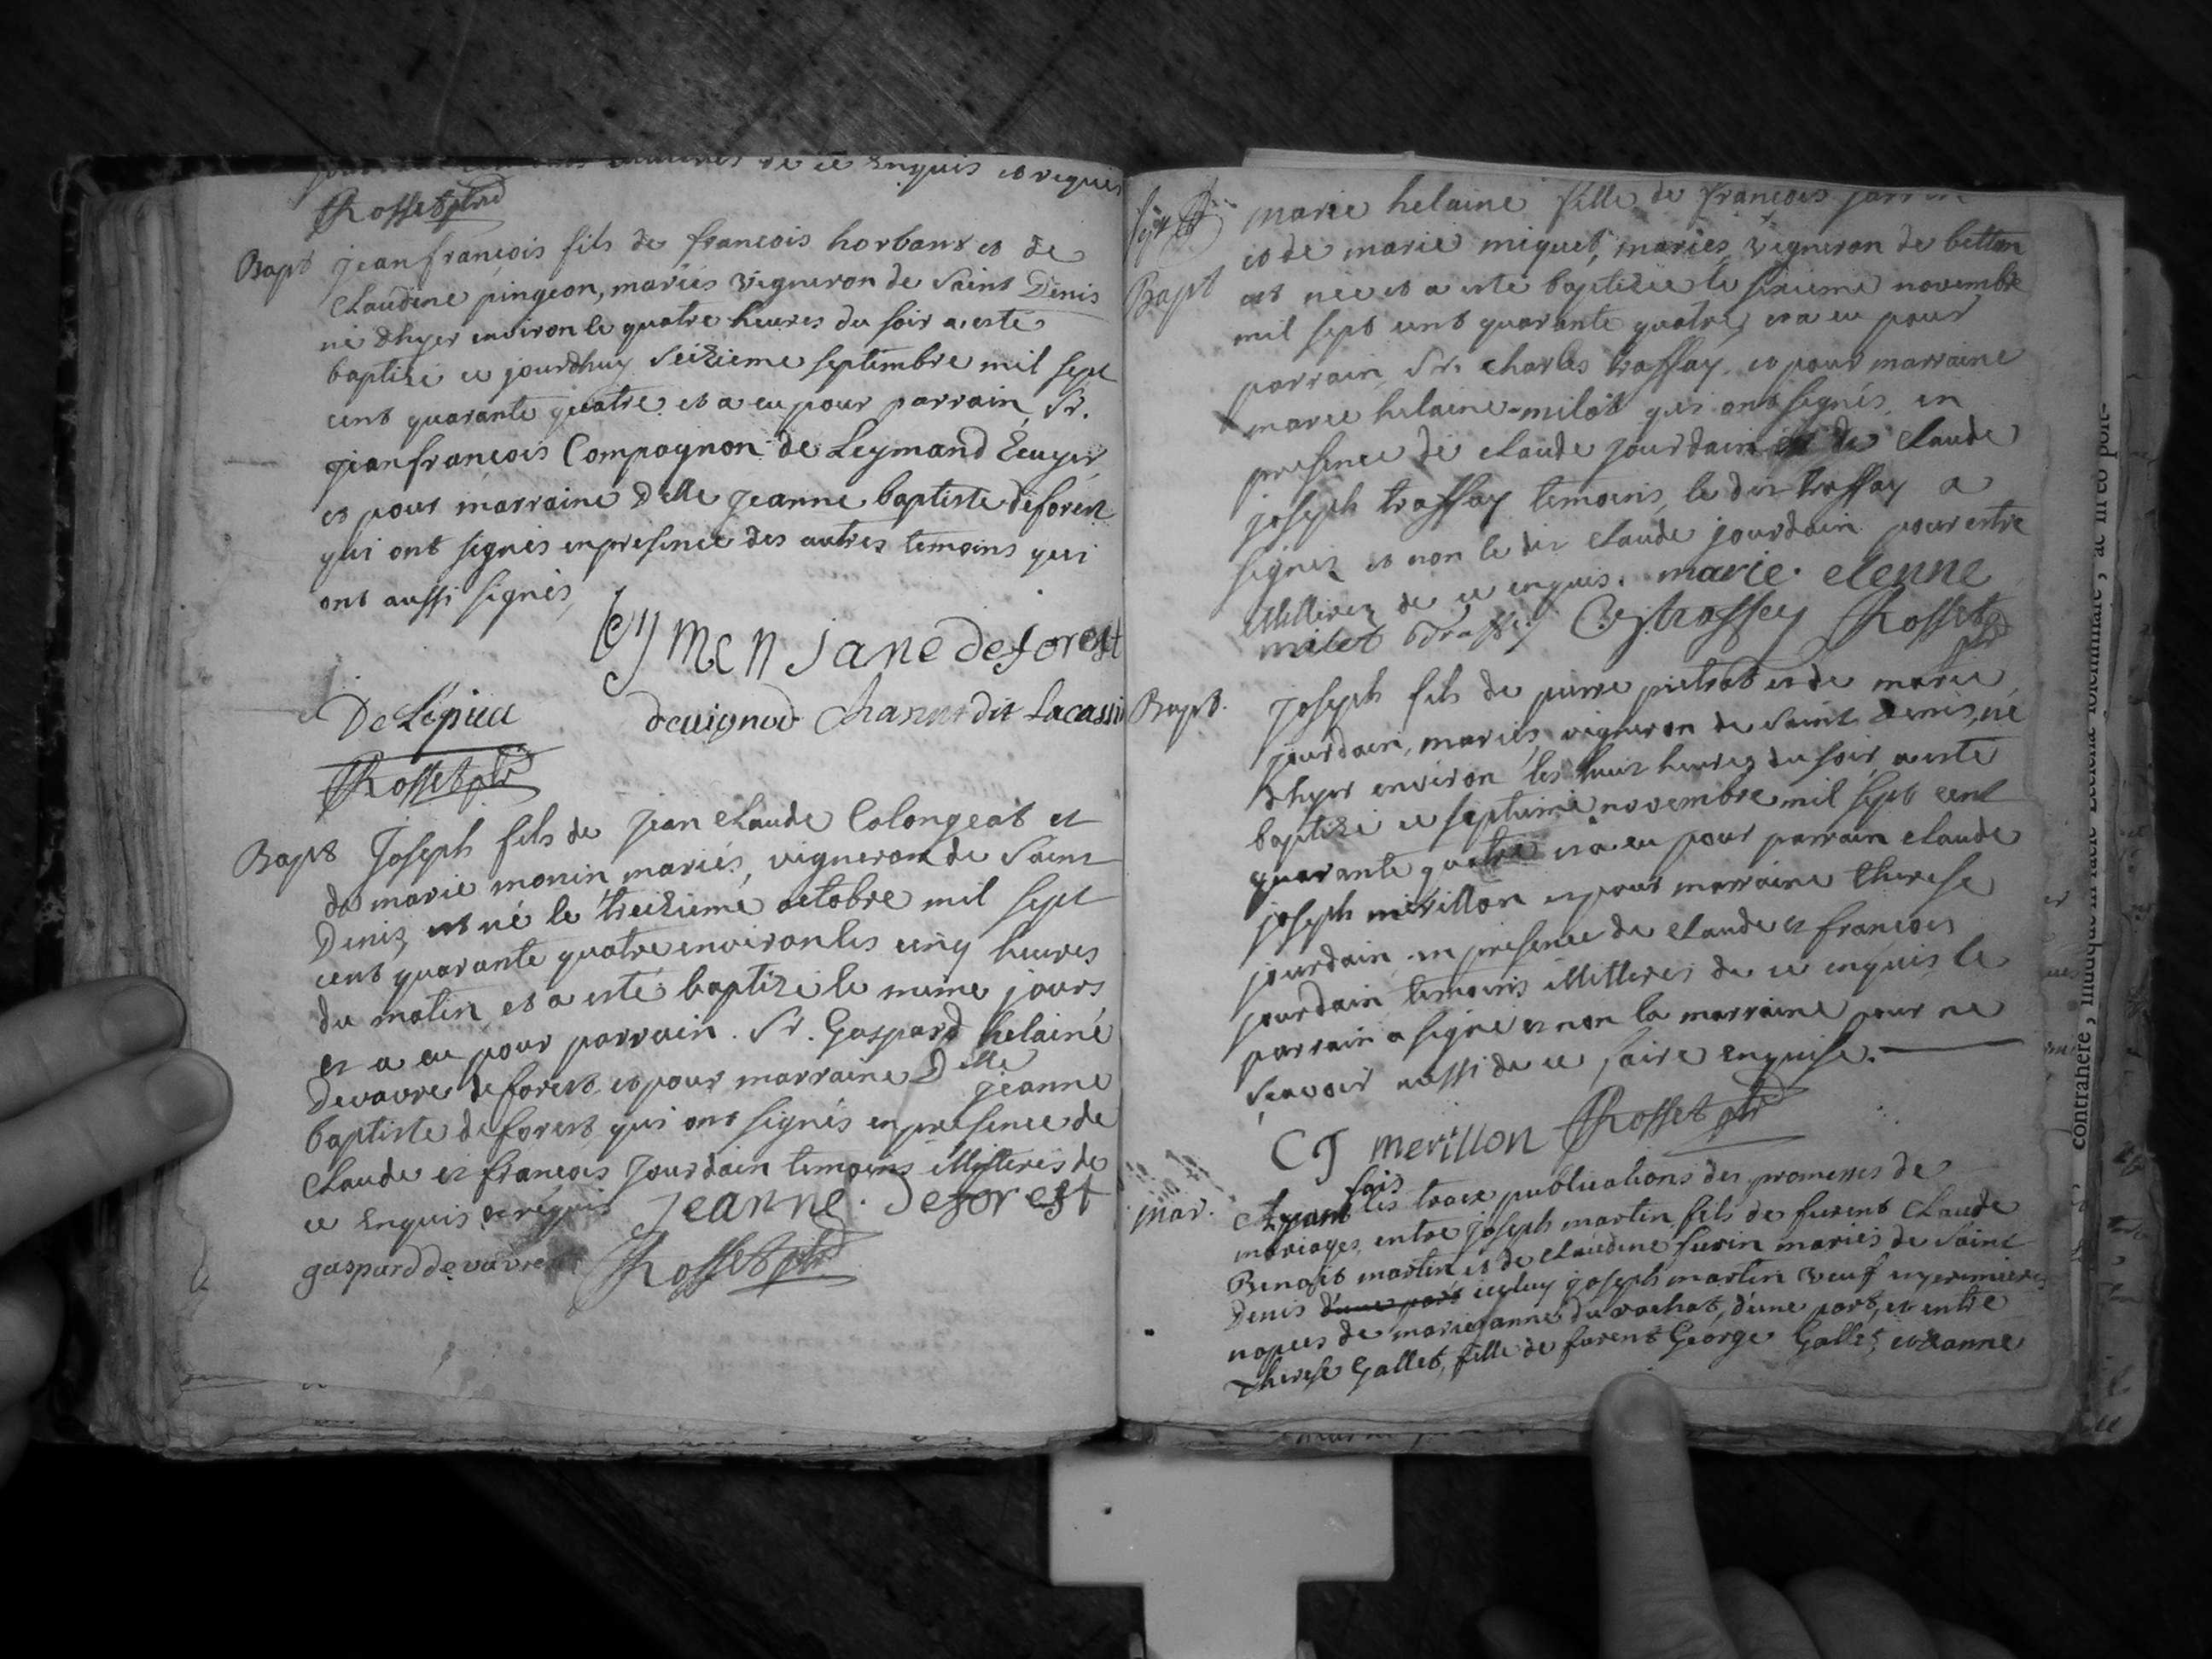 de ce Enquis et requis
Rosset ptre
Bapt Jean françois fils de françois horbant et de
Claudine pingeon, mariés vigneron de Saint Denis
né dhyer environ le quatre heures du soir a esté
baptisé ce jourdhuy Seizieme septembre mil sept
cent quarante quatre et a eu pour parrain Sr.
jeanfrançois Compagnon de Leymand Ecuyer
et pour marraine Delle jeanne baptiste deforest
qui ont signés en presence des autres temoins qui
ont aussi signés
Leymen jane deforest
De Lepieu devignod charnut dit Lacassi
Rosset ptre
Bapt Joseph fils de jean claude Colongeat et
de marie monin mariés, vigneron de Saint
Denis, est né le treizieme octobre mil sept
cent quarante quatre environ les cinq heures
du matin et a esté baptizé le meme jours
et a eu pour parrain. Sr. Gaspard helainé
Devavre deforest et pour marraine Delle jeanne
baptiste deforest qui ont signés en presence de
Claude et françois Jourdain temoins illitteres de
ce Enquis et requis Jeanne. Deforest
gaspard de vavre Rosset ptre
marie helaine fille de françois
et de marie miguet, mariés, vigneron de betton
Bapt est née et a esté baptizée le sixieme novembre
mil sept cent quarante quatre, et a eu pour
parrain Sr. Charles traffay et pour marraine
marie helaine milot qui ont signés en
presence de claude jourdain et de claude
joseph traffay temoins, le dit traffay a
signez et non le dit claude jourdain pour estre
illitterez de ce enquis. marie. elenne
milet C. j. traffey Rosset ptre
Bapt. Joseph fils de pierre pietrat et de marie
jourdain, mariés, vigneron de Saint Denis, né
dhyer environ les huit heures du soir, a esté
baptizé ce septieme novembre mil sept cent
quarante quatre et a eu pour parrain claude
joseph mérillon et pour marraine therese
jourdain en presence de claude et françois
jourdain temoins illitteres de ce enquis le
parrain a signé et non la marraine pour ne
sçavoir aussi de ce faire enquise.
CJ merillon Rosset ptre
fais
mar. Ayant les troix publications des promesses de
mariages, entre joseph martin, fils de furent Claude
Benoit martin et de claudine furin mariés de Saint
Denis d'une part iceluy joseph martin veuf en premieres
nopces de mariejanne du rachat, d'une part, et entre
therese Gallet, fille de furent George Gallet et Jeanne
contrahere,